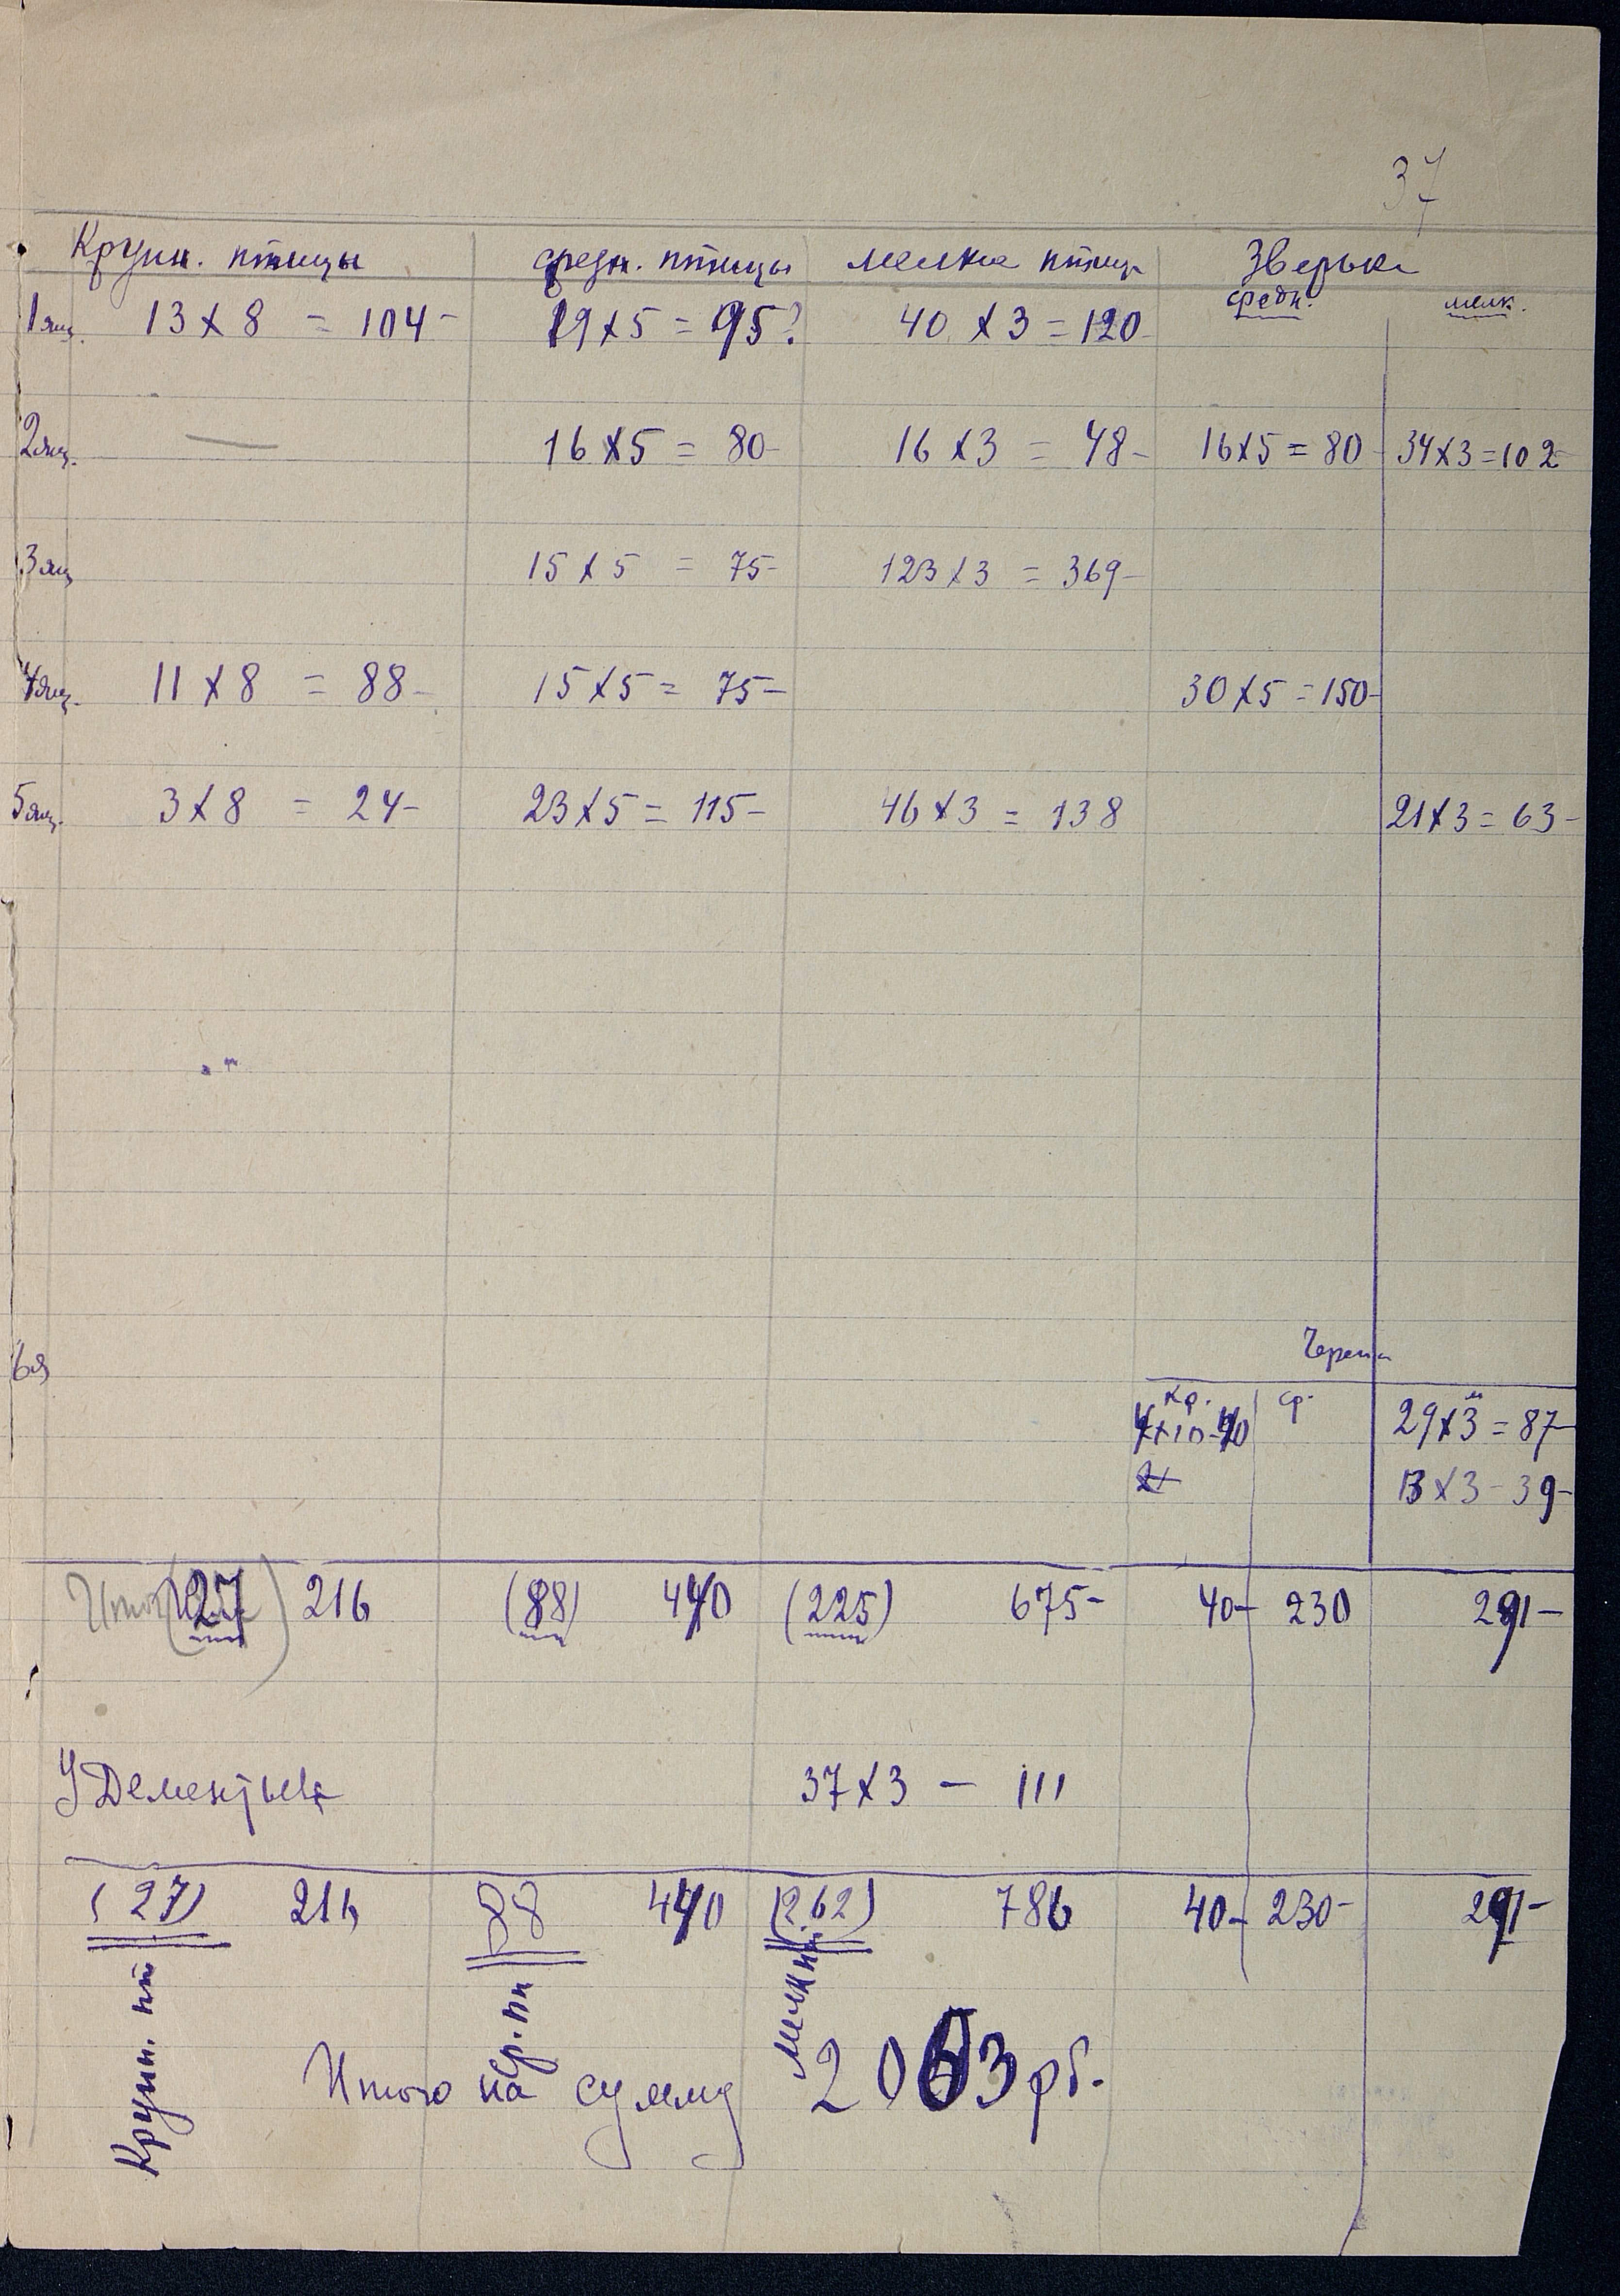 37
Крупн. птицы средн. птицы мелкие птицы Зверьки
средн. мелк.
1 ящ. 13 х 8 = 104- 19 х 5 = 95? 40 х 3 = 120-
2 ящ. — 16 х 5 = 80- 16 х 3 = 48- 16 х 5 = 80- 34 х 3 = 102-
3 ящ 15 х 5 = 75- 123 х 3 = 369-
4 ящ. 11 х 8 = 88- 15 х 5 = 75- 30 х 5 = 150-
5 ящ. 3 х 8 = 24- 23 х 5 = 115- 46 х 3 = 138 21 х 3 = 63-
6 я Черепа
кр. ср. м
4 х 10 - 40 29 х 3 = 87-
13 х 3 - 39-
Итого (27) 216 (88) 440 (225) 675- 40- 230 291-
У Дементьева 37 х 3 — 111
(27) 216 88 440 (262) 786 40- 230- 291-
Крупн. пт
ср. пт
мелкие
Итого на сумму 2063 рб.